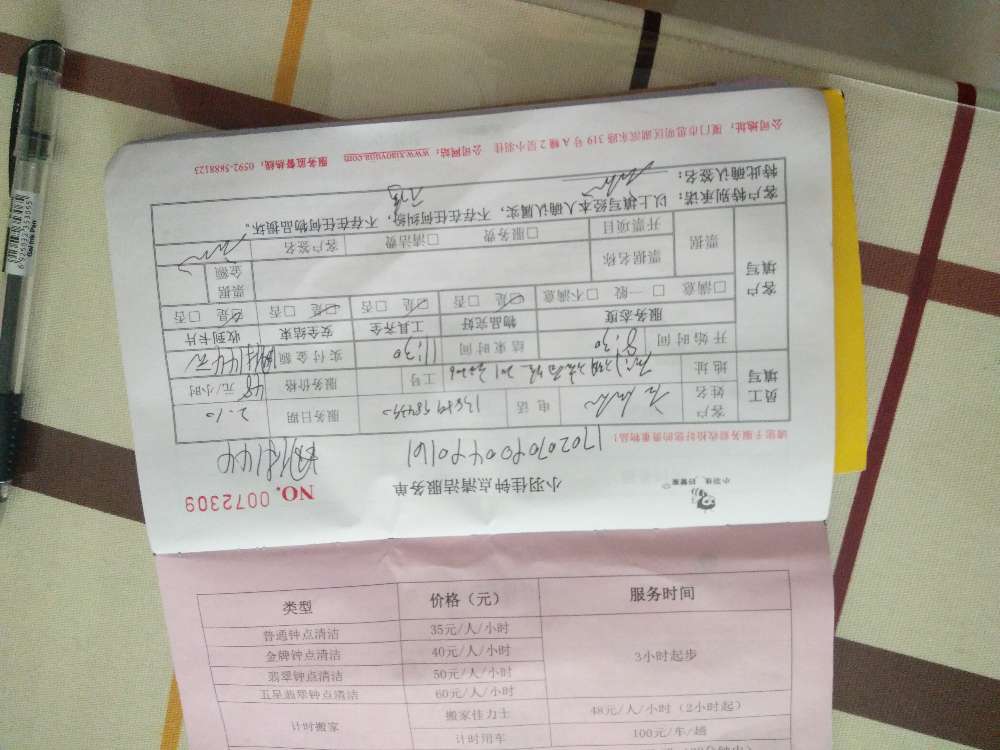 小羽佳钟点清洁服务单
NO. 0072309
请您于服务前收拾好您的贵重物品!
员工填写
客户姓名
电话
服务日期 2.10
地址
工号
服务价格 48 元/小时
开始时间 8:30
结束时间 11:30
实付金额
服务态度 物品完好 工具齐全 安全结束 收到卡片
客户填写
□满意 □一般 □不满意 □是 □否 □是 □否 □是 □否 □是 □否
票据
票据名称
票据金额
开票项目 □服务费 □清洁费 客户签名
客户特别承诺:以上填写经本人确认属实,不存在任何纠纷,不存在任何物品损坏。
特此确认签名:
公司地址:厦门市思明区湖滨东路 319 号 A 幢 2 层小羽佳 公司网站:www.xiaoyujia.com 服务监督热线:0592-5688123
类型 价格(元) 服务时间
普通钟点清洁 35元/人/小时
金牌钟点清洁 40元/人/小时
3小时起步
翡翠钟点清洁 50元/人/小时
五星翡翠钟点清洁 60元/人/小时
计时搬家 搬家佳力士 48元/人/小时(2小时起)
计时用车 100元/车/趟